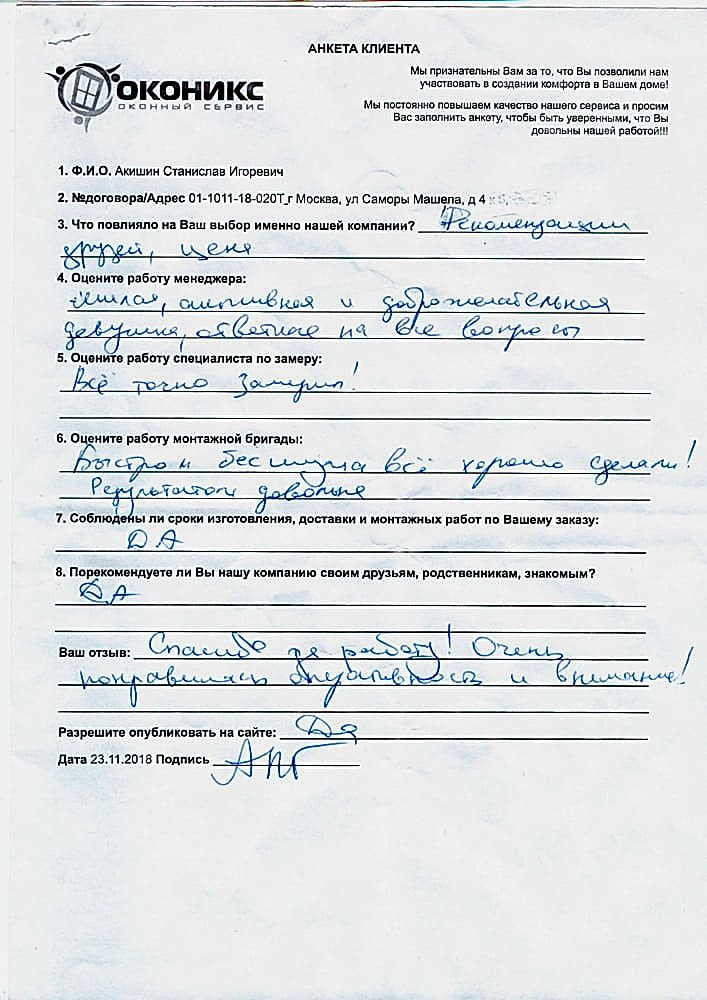 АНКЕТА КЛИЕНТА
ОКОНИКС
ОКОННЫЙ СЕРВИС
Мы признательны Вам за то, что Вы позволили нам
участвовать в создании комфорта в Вашем доме!
Мы постоянно повышаем качество нашего сервиса и просим
Вас заполнить анкету, чтобы быть уверенными, что Вы
довольны нашей работой!!!
1. Ф.И.О. Акишин Станислав Игоревич
2. №договора/Адрес 01-1011-18-020Т_г Москва, ул Саморы Машела, д 4
3. Что повлияло на Ваш выбор именно нашей компании? Рекомендации
друзей, цена
4. Оцените работу менеджера:
активная и доброжелательная
девушка, ответила на все вопросы
5. Оцените работу специалиста по замеру:
Всё точно замерил!
6. Оцените работу монтажной бригады:
Быстро и без шума всё хорошо сделали!
Результатом довольны
7. Соблюдены ли сроки изготовления, доставки и монтажных работ по Вашему заказу:
ДА
8. Порекомендуете ли Вы нашу компанию своим друзьям, родственникам, знакомым?
ДА
Ваш отзыв: Спасибо за работу! Очень
понравилась оперативность и внимание!
Разрешите опубликовать на сайте: Да
Дата 23.11.2018 Подпись